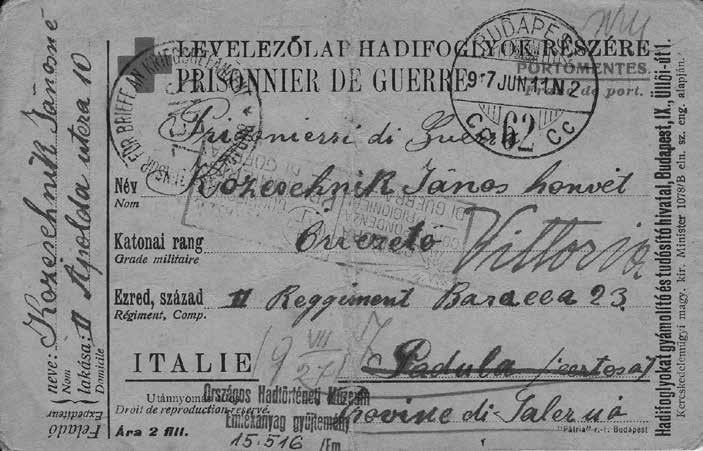 LEVELEZŐLAP HADIFOGLYOK RÉSZÉRE
PRISONNIER DE GUERRE
PORTÓMENTES.
Franc de port.
BUDAPEST
917 JUN 11 N2
62
Cc Cc
ZENSUR FÜR BRIEFE AN KRIEGSGEFANGENE
Prigonierri di Guerra
Név Közeschnik János honvét
Nom
Katonai rang Orvezető Vittoria
Grade militaire
Ezred, század II Reggiment Baracca 23.
Régiment, Comp.
ITALIE 19 VII/27 17 Padula (certosa)
Provinc di Salernó
Utánnyomás
Droit de reproduction réservé.
Ára 2 fill.
Országos Hadtörténeti Múzeum
Emlékanyag gyűjtemény
15.516 /Em
"Pátria" r.-t. Budapest
Feladó
Expéditeur
neve: Közeschnik Jánosné
Nom
lakása: II Apolda utcza 10
Domicile
Hadifoglyokat gyámolító és tudósító hivatal, Budapest, IX., Üllői-út 1.
Kereskedelemügyi magy. kir. Minister 1078/B eln. sz. eng. alapján.